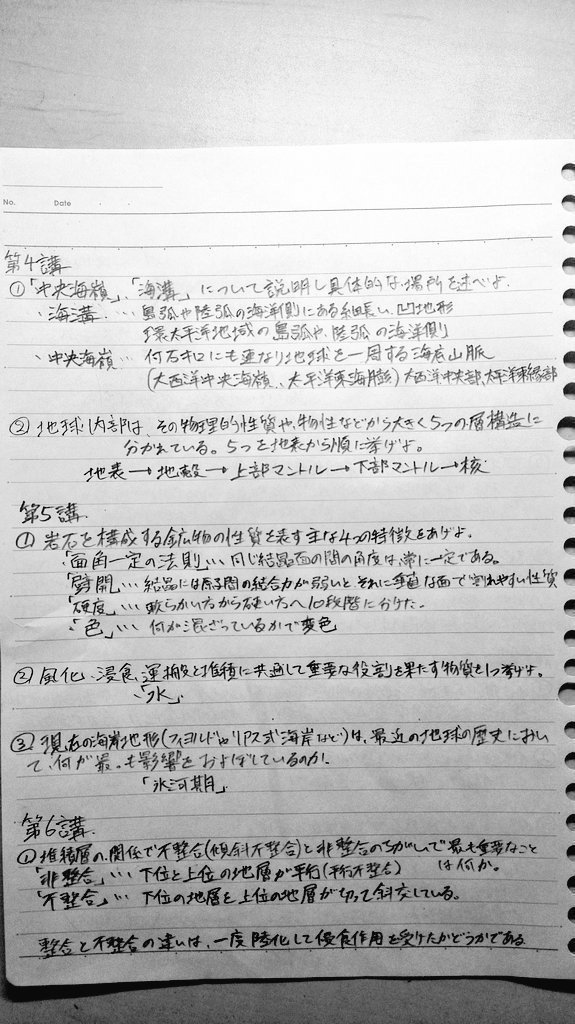 No.
Date
第4講
①「中央海嶺」、「海溝」について説明し具体的な場所を述べよ。
・海溝 … 島弧や陸弧の海洋側にある細長い凹地形
環太平洋地域の島弧や、陸弧の海洋側
・中央海嶺 … 何万キロにも連なり地球を一周する海底山脈
(大西洋中央海嶺、太平洋東海膨) 大西洋中央部,太平洋東縁部
② 地球内部は、その物理的性質や、物性などから大きく5つの層構造に
分かれている。5つを地表から順に挙げよ。
地表→地殻→上部マントル→下部マントル→核
第5講
① 岩石を構成する鉱物の性質を表す主な4つの特徴をあげよ。
・「面角一定の法則」… 同じ結晶面の間の角度は常に一定である。
「劈開」… 結晶には原子間の結合力が弱いと それに垂直な面で割れやすい性質
「硬度」… 軟らかい方から硬い方へ10段階に分けた。
・「色」… 何が混ざっているかで変色
② 風化、浸食、運搬と堆積に共通して重要な役割を果たす物質を1つ挙げよ。
・「水」
③ 現在の海岸地形(フィヨルドやリアス式海岸など)は、最近の地球の歴史におい
て、何が最も影響をおよぼしているのか。
「氷河期」
第6講
① 堆積層の関係で不整合(傾斜不整合)と非整合のちがいで最も重要なこと
は何か。
「非整合」… 下位と上位の地層が平行(平行不整合)
「不整合」… 下位の地層を上位の地層が切って斜交している。
整合と不整合の違いは、一度陸化して侵食作用を受けたかどうかである